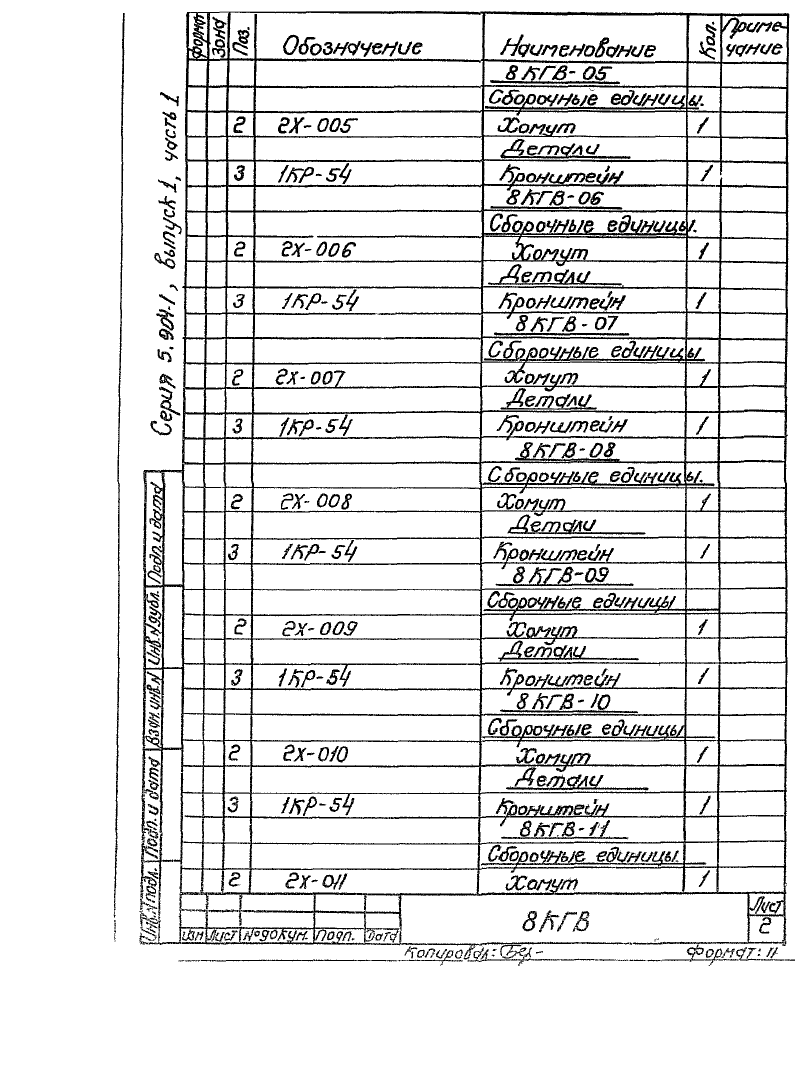 Формат Зона Поз. Обозначение Наименование Кол. Приме-
чание
8КГВ-05
Сборочные единицы.
2 2Х-005 Хомут 1
Детали
3 1КР-54 Кронштейн 1
8КГВ-06
Сборочные единицы.
2 2Х-006 Хомут 1
Детали
3 1КР-54 Кронштейн 1
8КГВ-07
Сборочные единицы
2 2Х-007 Хомут 1
Детали
3 1КР-54 Кронштейн 1
8КГВ-08
Сборочные единицы.
2 2Х-008 Хомут 1
Детали
3 1КР-54 Кронштейн 1
8КГВ-09
Сборочные единицы
2 2Х-009 Хомут 1
Детали
3 1КР-54 Кронштейн 1
8КГВ-10
Сборочные единицы
2 2Х-010 Хомут 1
Детали
3 1КР-54 Кронштейн 1
8КГВ-11
Сборочные единицы.
2 2Х-011 Хомут 1
Серия 5.904-1, выпуск 1, часть 1
Подп. и дата
Инв.N дубл.
Взам.инв.N
Подп. и дата
Инв.N подл.
Изм Лист N°докум. Подп. Дата
8КГВ
Лист
2
Копировал: Формат: 11